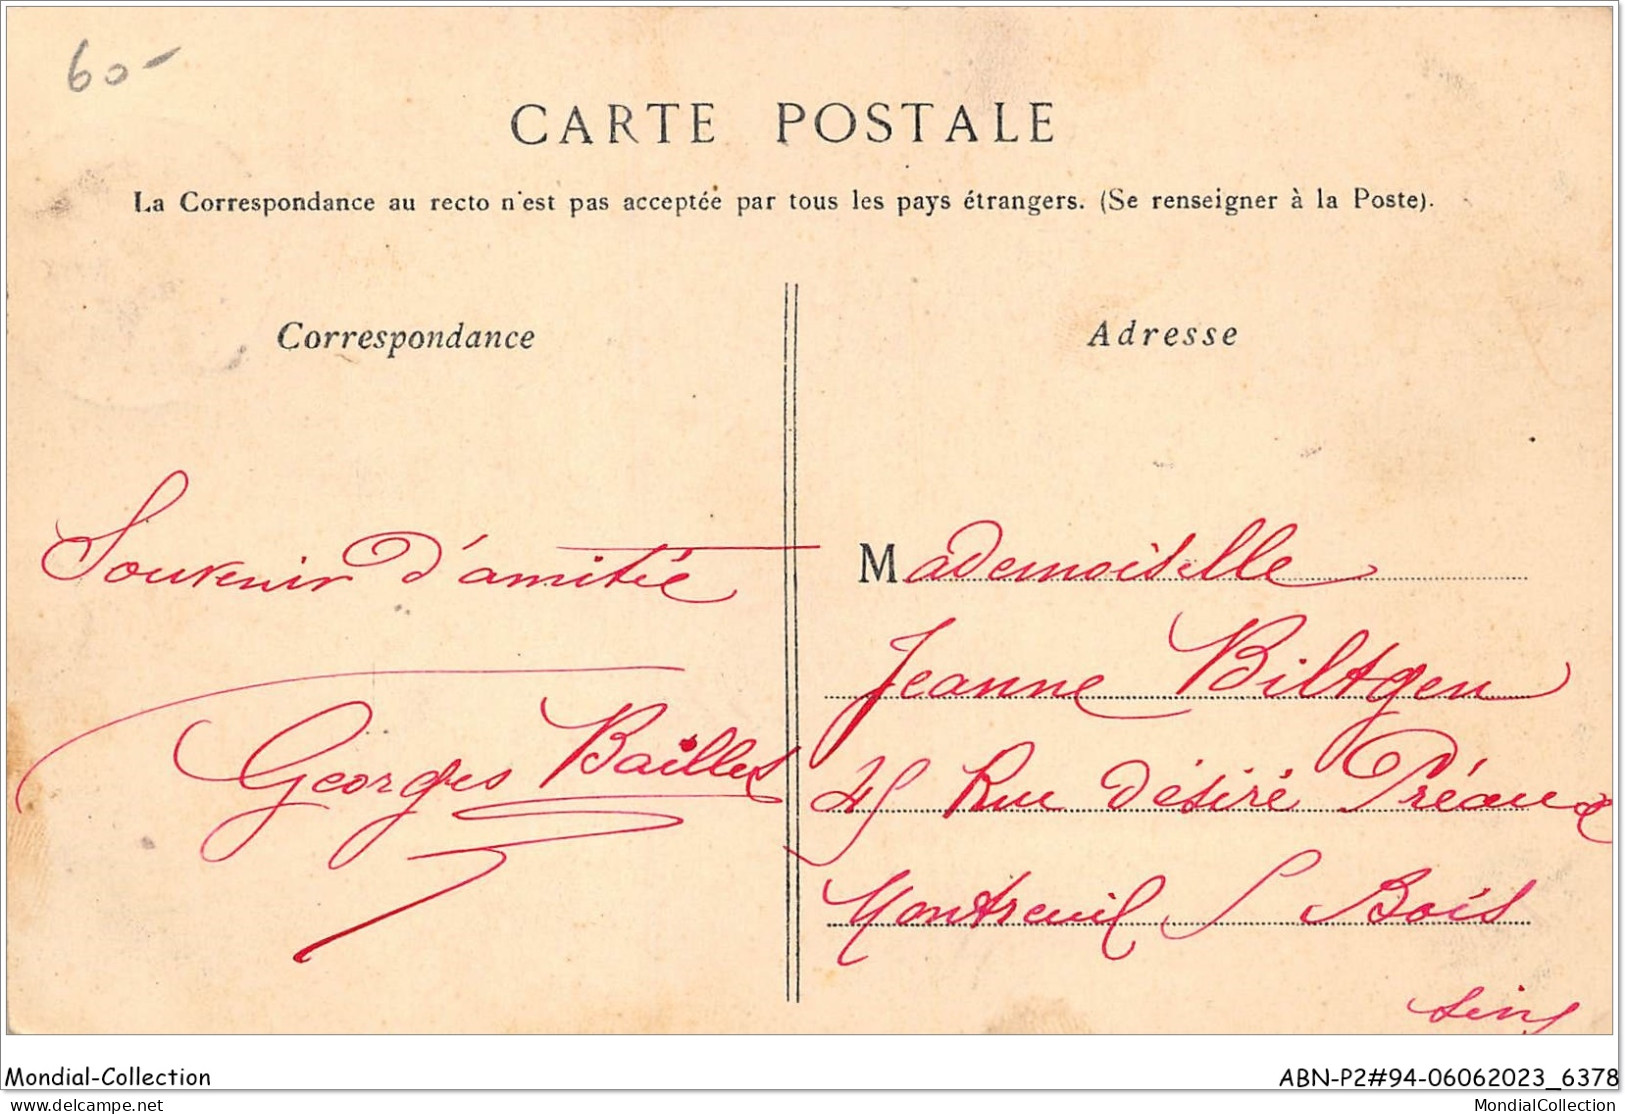 60-
CARTE POSTALE
La Correspondance au recto n'est pas acceptée par tous les pays étrangers. (Se renseigner à la Poste).
Correspondance
Adresse
Souvenir d'amitié
Georges Bailles
Mademoiselle
Jeanne Biltgen
45 Rue Désiré Préaux
Montreuil S Bois
Seine
Mondial-Collection
ABN-P2#94-06062023_6378
www.delcampe.net
MondialCollection